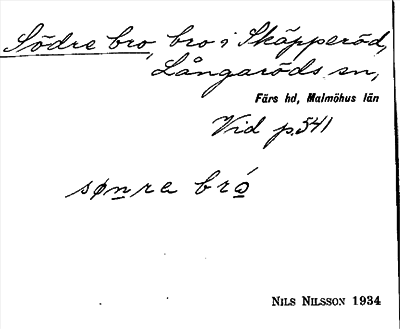 Södre bro, bro i Skäpperöd,
Långaröds sn,
Färs hd, Malmöhus län
Vid p. 541
sønra bró
NILS NILSSON 1934